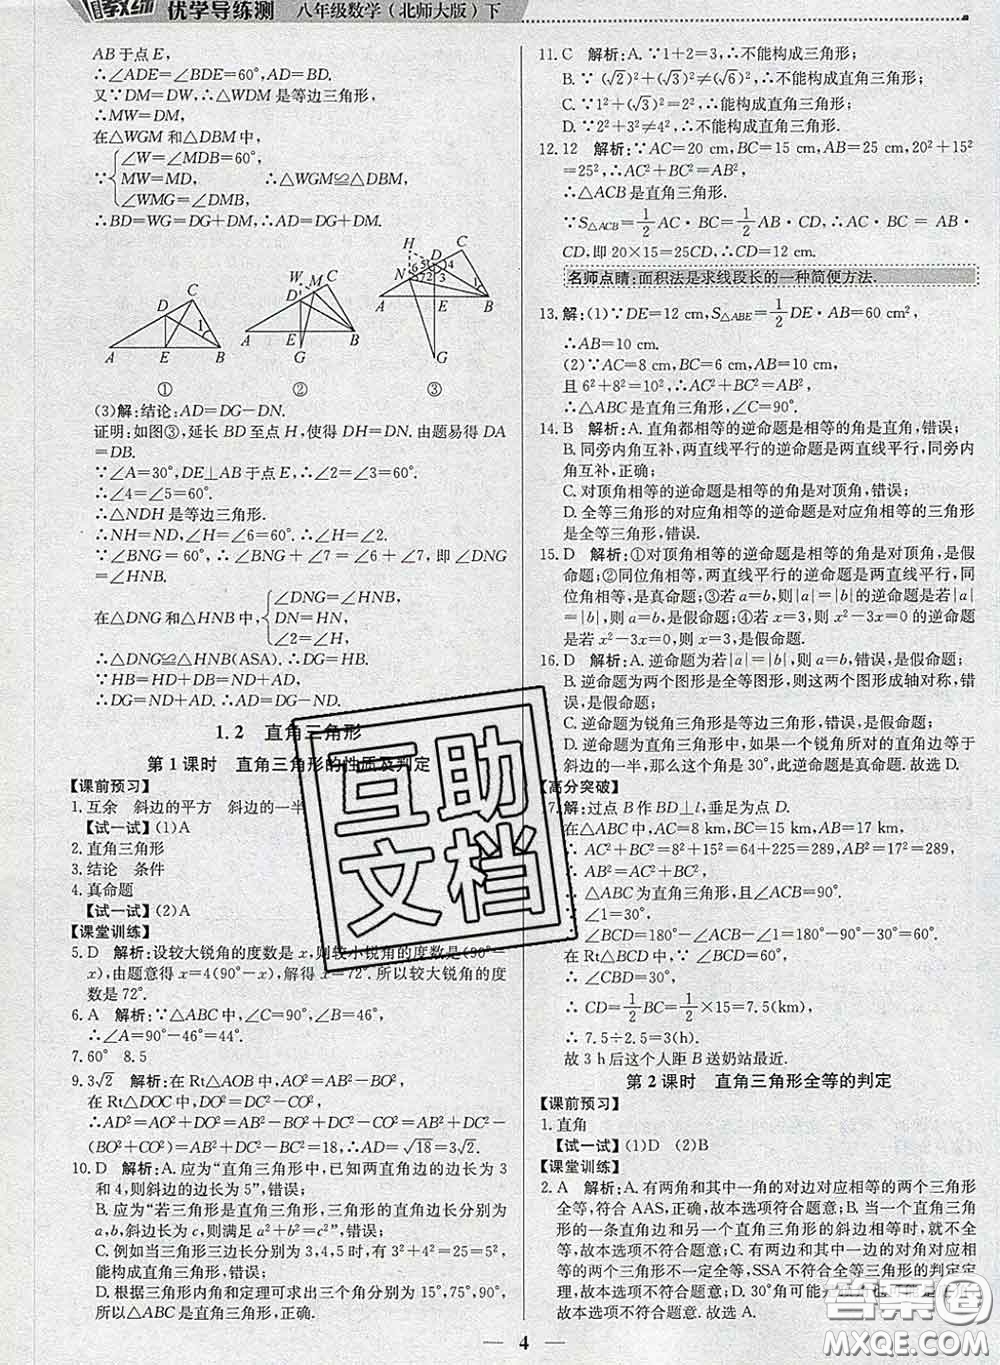 优学导练测 八年级数学(北师大版)下
AB于点E,
∴∠ADE=∠BDE=60°,AD=BD.
又∵DM=DW,∴△WDM是等边三角形,
∴MW=DM,
在△WGM和△DBM中,
∠W=∠MDB=60°,
∵ MW=MD, ∴△WGM≌△DBM,
∠WMG=∠DMB,
∴BD=WG=DG+DM,∴AD=DG+DM.
A E B D C 1
A G B D M C
H C D N A B G
① ② ③
(3)解:结论:AD=DG-DN.
证明:如图③,延长BD至点H,使得DH=DN.由题易得DA
=DB.
∵∠A=30°,DE⊥AB于点E,∴∠2=∠3=60°.
∴∠4=∠5=60°.
∴△NDH是等边三角形.
∴NH=ND,∠H=∠6=60°.∴∠H=∠2.
∵∠BNG=60°,∴∠BNG+∠7=∠6+∠7,即∠DNG
=∠HNB.
∠DNG=∠HNB,
在△DNG和△HNB中, DN=HN,
∠2=∠H,
∴△DNG≌△HNB(ASA).∴DG=HB.
∵HB=HD+DB=ND+AD,
∴DG=ND+AD.∴AD=DG-ND.
1.2 直角三角形
第1课时 直角三角形的性质及判定
【课前预习】
1.互余 斜边的平方 斜边的一半
【试一试】(1)A
2.直角三角形
3.结论 条件
4.真命题
【试一试】(2)A
【课堂训练】
5.D 解析:设较大锐角的度数是x,则较小锐角的度数是(90°-
x),由题意得x=4(90°-x),解得x=72°.所以较大锐角的度
数是72°.
6.A 解析:∵△ABC中,∠C=90°,∠B=46°,
∴∠A=90°-46°=44°.
7.60° 8.5
9.3√2 解析:在Rt△AOB中,AB²=AO²+BO²,
在Rt△DOC中,DC²=DO²+CO²,
∴AD²=AO²+DO²=AB²-BO²+DC²-CO²=AB²+DC²-
(BO²+CO²)=AB²+DC²-BC²=18,∴AD=√18=3√2.
10.D 解析:A.应为“直角三角形中,已知两直角边的边长为3
和4,则斜边的边长为5”,错误;
B.应为“若三角形是直角三角形,其三边长从小到大依次为
a,b,斜边长为c,则满足a²+b²=c²”,错误;
C.例如当三角形三边长分别为3,4,5时,有3²+4²=5²,此时
能构成直角三角形,错误;
D.根据三角形内角和定理可求出三个角分别为15°,75°,90°,
所以△ABC是直角三角形,正确.
11.C 解析:A.∵1+2=3,∴不能构成三角形;
B.∵(√2)²+(√3)²≠(√6)²,∴不能构成直角三角形;
C.∵1²+(√3)²=2²,∴能构成直角三角形;
D.∵2²+3²≠4²,∴不能构成直角三角形.
12.12 解析:∵AC=20 cm,BC=15 cm,AB=25 cm,20²+15²
=25²,∴AC²+BC²=AB²,
∴△ACB是直角三角形.
∵S△ACB=1/2AC·BC=1/2AB·CD,∴AC·BC=AB·
CD,即20×15=25CD,∴CD=12 cm.
名师点睛:面积法是求线段长的一种简便方法.
13.解:(1)∵DE=12 cm,S△ABE=1/2DE·AB=60 cm²,
∴AB=10 cm.
(2)∵AC=8 cm,BC=6 cm,AB=10 cm,
且6²+8²=10²,∴AC²+BC²=AB²,
∴△ABC是直角三角形,∠C=90°.
14.B 解析:A.直角都相等的逆命题是相等的角是直角,错误;
B.同旁内角互补,两直线平行的逆命题是两直线平行,同旁
内角互补,正确;
C.对顶角相等的逆命题是相等的角是对顶角,错误;
D.全等三角形的对应角相等的逆命题是对应角相等的三角形
是全等三角形,错误.
15.D 解析:①对顶角相等的逆命题是相等的角是对顶角,是假
命题;②同位角相等,两直线平行的逆命题是两直线平行,同位
角相等,是真命题;③若a=b,则|a|=|b|的逆命题是若|a|
=|b|,则a=b,是假命题;④若x=3,则x²-3x=0的逆命题
是若x²-3x=0,则x=3,是假命题.
16.D 解析:A.逆命题为若|a|=|b|,则a=b,错误,是假命题;
B.逆命题为两个图形是全等图形,则这两个图形成轴对称,错
误,是假命题;
C.逆命题为锐角三角形是等边三角形,错误,是假命题;
D.逆命题为如果一个三角形有一个锐角所对的直角边等于斜
边的一半,那么这个角是30°,此逆命题是真命题.故选D.
【高分突破】
17.解:过点B作BD⊥l,垂足为点D.
在△ABC中,∵AC=8 km,BC=15 km,AB=17 km,
∴AC²+BC²=8²+15²=64+225=289,AB²=17²=289,
∴AC²+BC²=AB²,
∴△ABC为直角三角形,且∠ACB=90°.
∵∠1=30°,
∴∠BCD=180°-∠ACB-∠1=180°-90°-30°=60°.
在Rt△BCD中,∵∠BCD=60°,
∴∠CBD=30°,
∴CD=1/2BC=1/2×15=7.5(km),
∴7.5÷2.5=3(h).
故3 h后这个人距B送奶站最近.
第2课时 直角三角形全等的判定
【课前预习】
1.直角
【试一试】(1)D (2)B
【课堂训练】
2.A 解析:A.有两角和其中一角的对边对应相等的两个三角形
全等,符合AAS,正确,故本选项符合题意;B.当一个直角三角
形的一条直角边和另一个直角三角形的斜边相等时,就不全
等,故本选项不符合题意;C.有两边和其中一边的对角对应相
等的两个三角形不一定全等,SSA不符合全等三角形的判定定
理,故本选项不符合题意;D.30°角可能是
等,故本选项不符合题意.故选A.
4
互助文档
答案圈
MXQE.COM